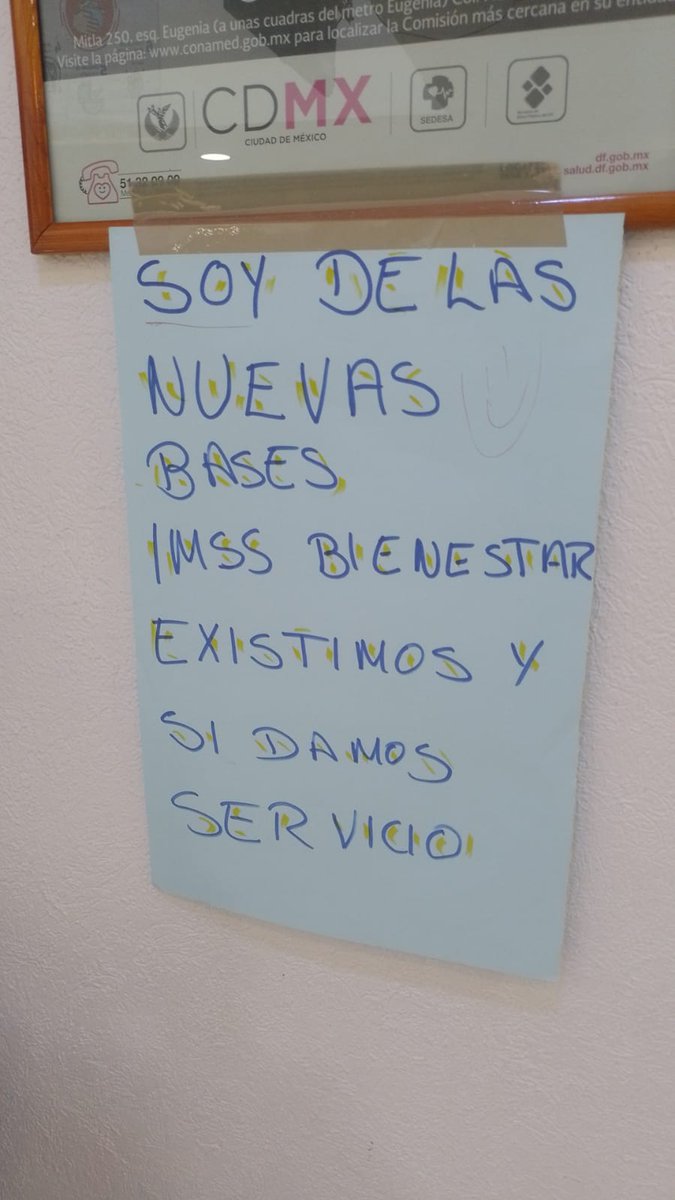 Mitla 250. esq. Eugenia (a unas cuadras del metro Eugenia)
Visite la página: www.conamed.gob.mx para localizar la Comisión más cercana en su entidad
CDMX
CIUDAD DE MÉXICO
SEDESA
df.gob.mx
salud.df.gob.mx
SOY DE LAS
NUEVAS
BASES
IMSS BIENESTAR
EXISTIMOS Y
SI DAMOS
SERVICIO